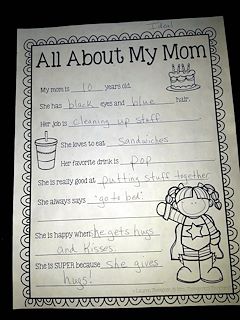 Ideal
All About My Mom
My mom is 10 years old.
She has black eyes and blue hair.
Her job is cleaning up stuff
She loves to eat Sandwiches
Her favorite drink is pop
She is really good at putting stuff together
She always says "go to bed".
She is happy when he gets hugs
and kisses.
She is SUPER because she gives
hugs!